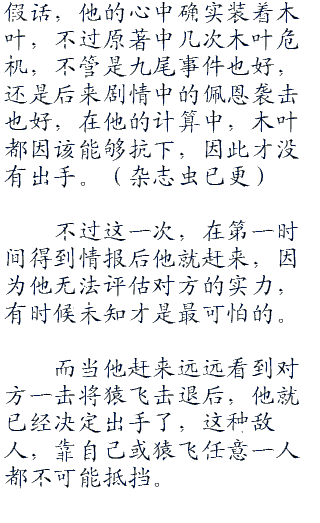 假话，他的心中确实装着木
叶，不过原著中几次木叶危
机，不管是九尾事件也好，
还是后来剧情中的佩恩袭击
也好，在他的计算中，木叶
都因该能够抗下，因此才没
有出手。（杂志虫已更）
不过这一次，在第一时
间得到情报后他就赶来，因
为他无法评估对方的实力，
有时候未知才是最可怕的。
而当他赶来远远看到对
方一击将猿飞击退后，他就
已经决定出手了，这种敌
人，靠自己或猿飞任意一人
都不可能抵挡。